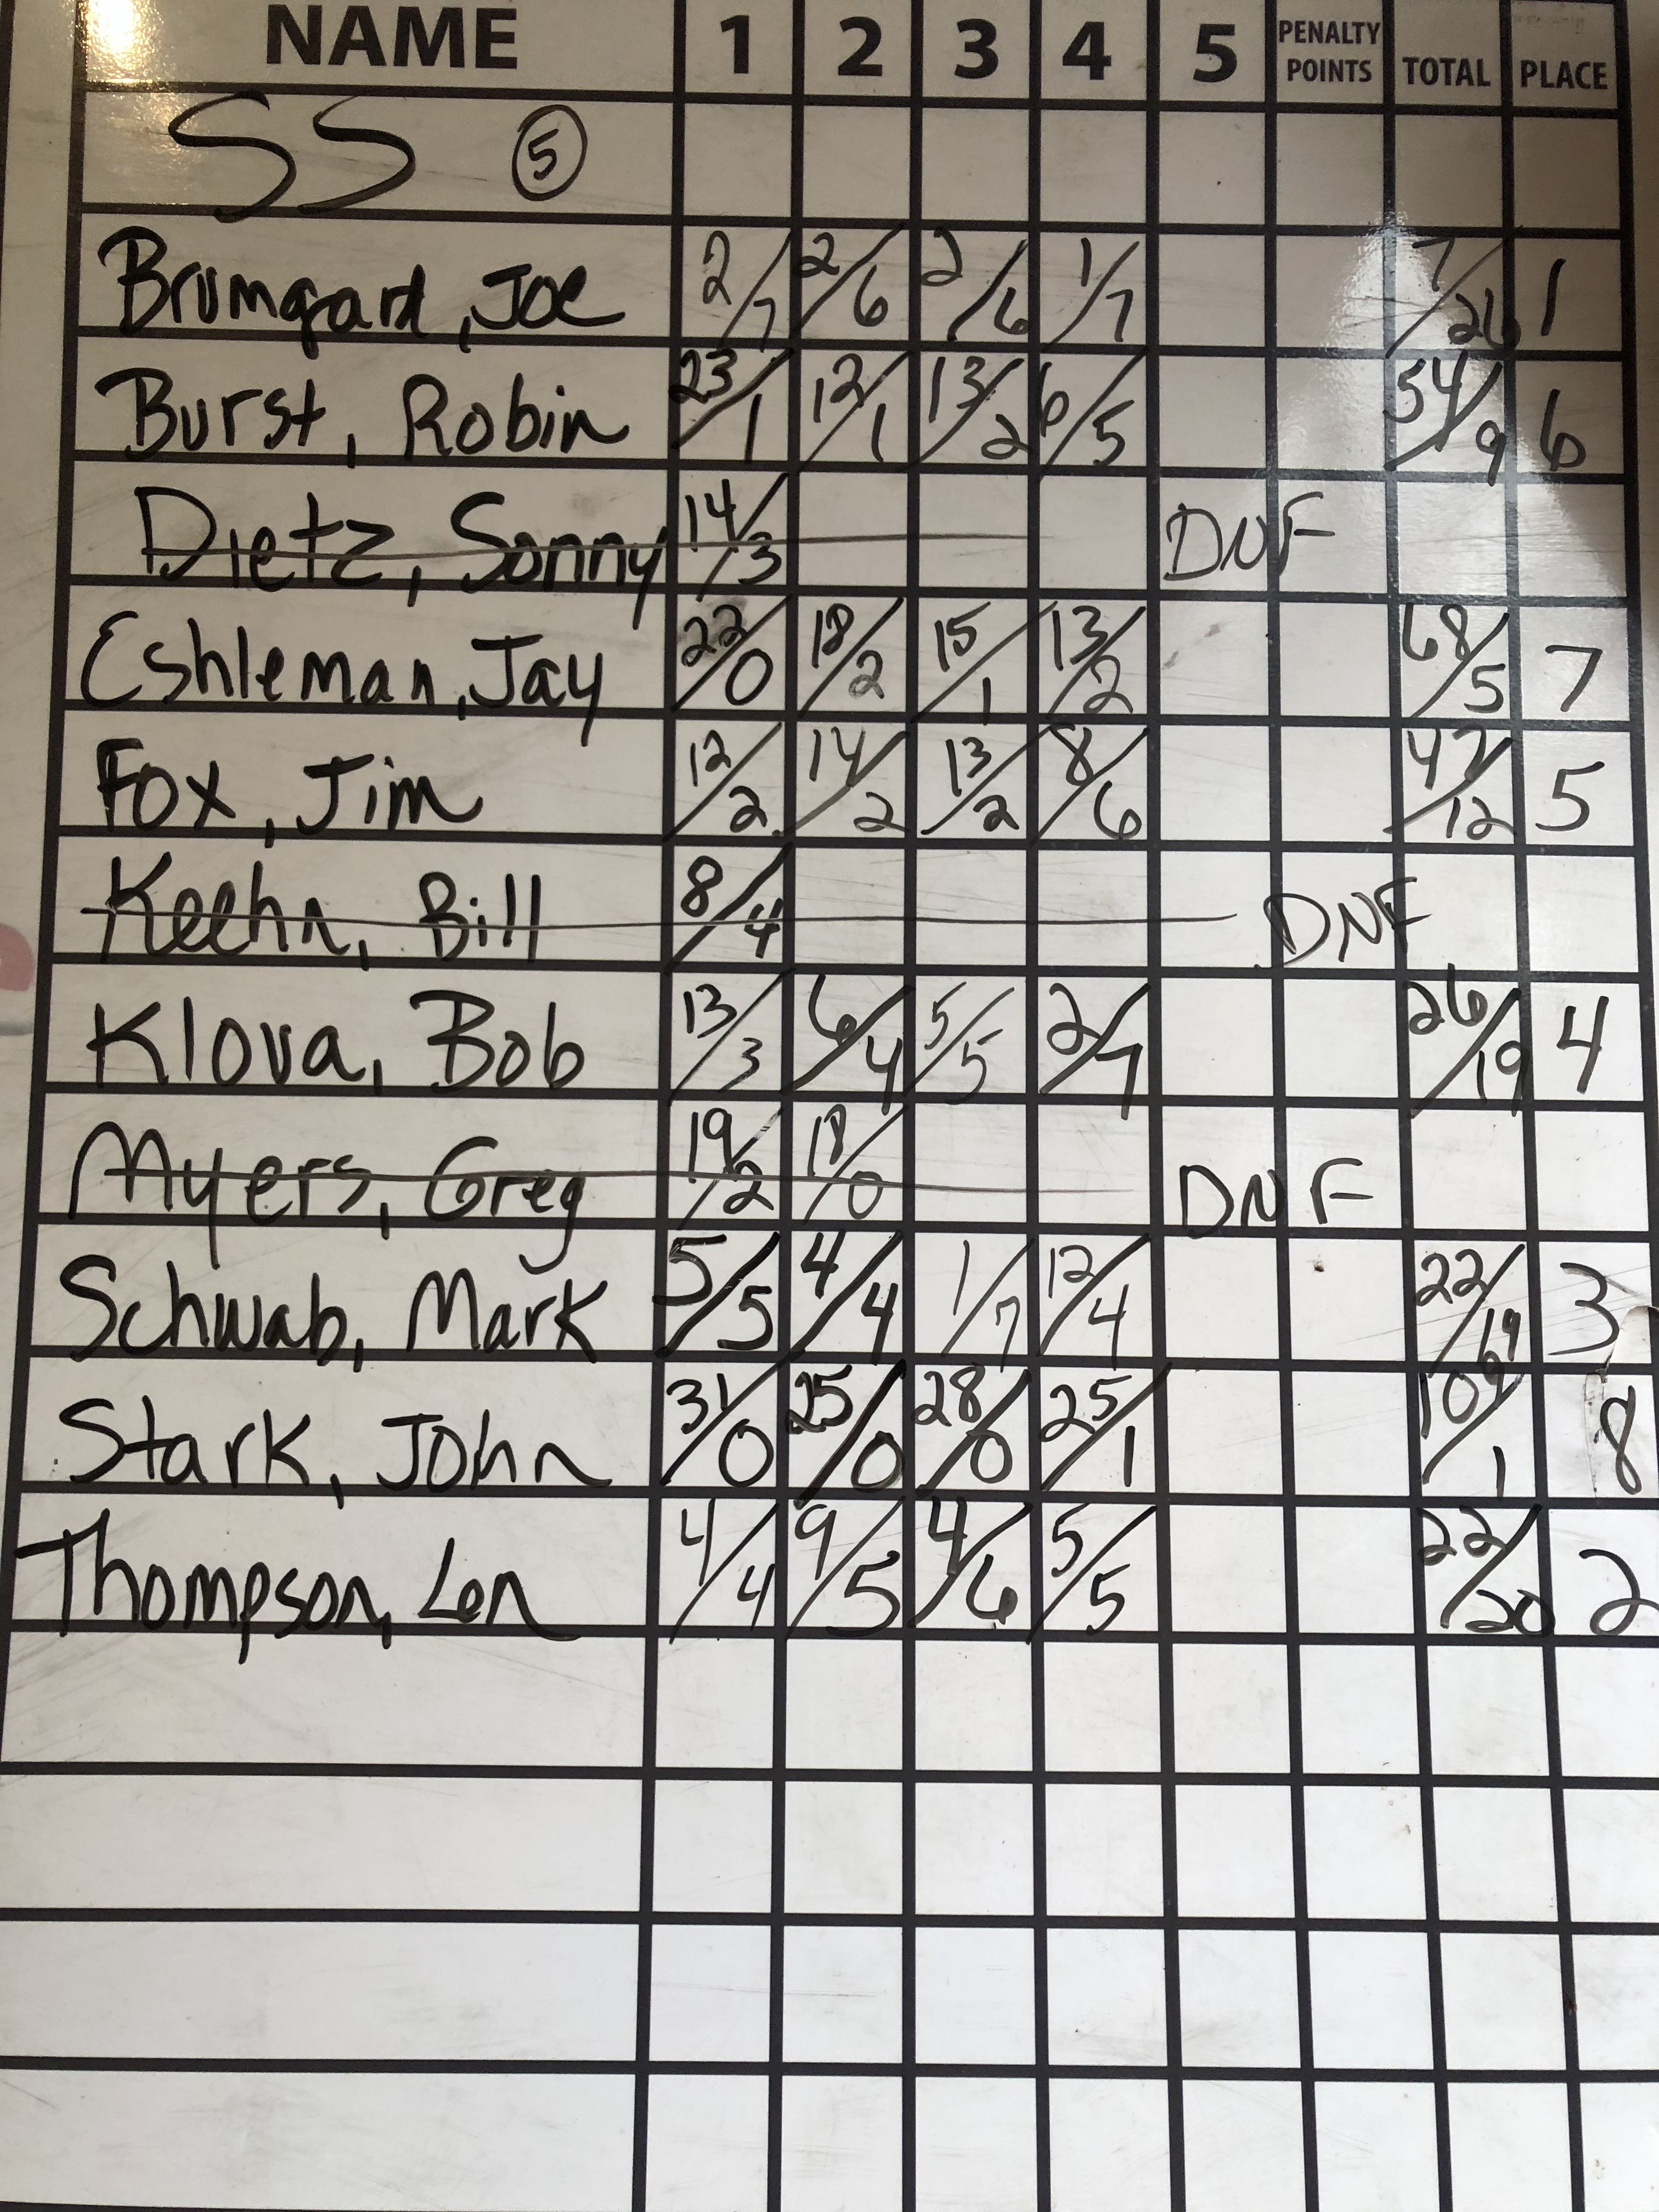 NAME 1 2 3 4 5 PENALTY POINTS TOTAL PLACE
SS 5
Brumgard, Joe 2/7 2/6 2/6 1/7 7/26 1
Burst, Robin 23/1 12/1 13/2 6/5 54/9 6
Dietz, Sonny 14/3 DNF
Eshleman, Jay 22/0 18/2 15/1 13/2 68/5 7
Fox, Jim 12/2 14/2 13/2 8/6 47/12 5
Keehn, Bill 8/4 DNF
Klova, Bob 13/3 6/4 5/5 2/7 26/19 4
Myers, Greg 19/2 18/0 DNF
Schwab, Mark 5/5 4/4 1/7 12/4 22/19 3
Stark, John 31/0 25/0 28/0 25/1 109/1 8
Thompson, Len 4/4 9/5 4/6 5/5 22/20 2